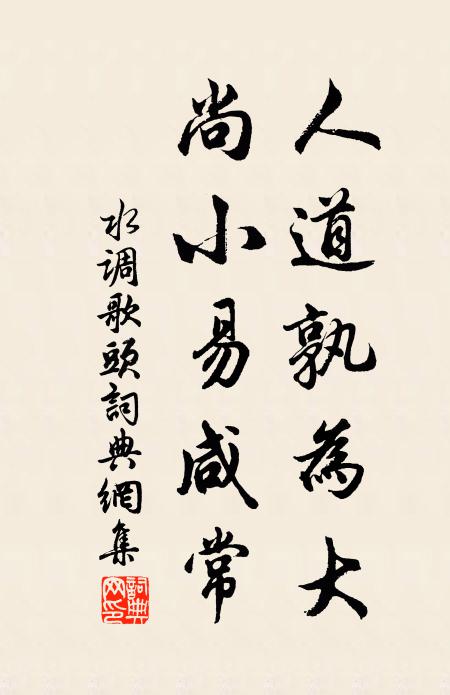 人道孰為大
尚小易咸常
水调歌頭詞典網集
詞典網印